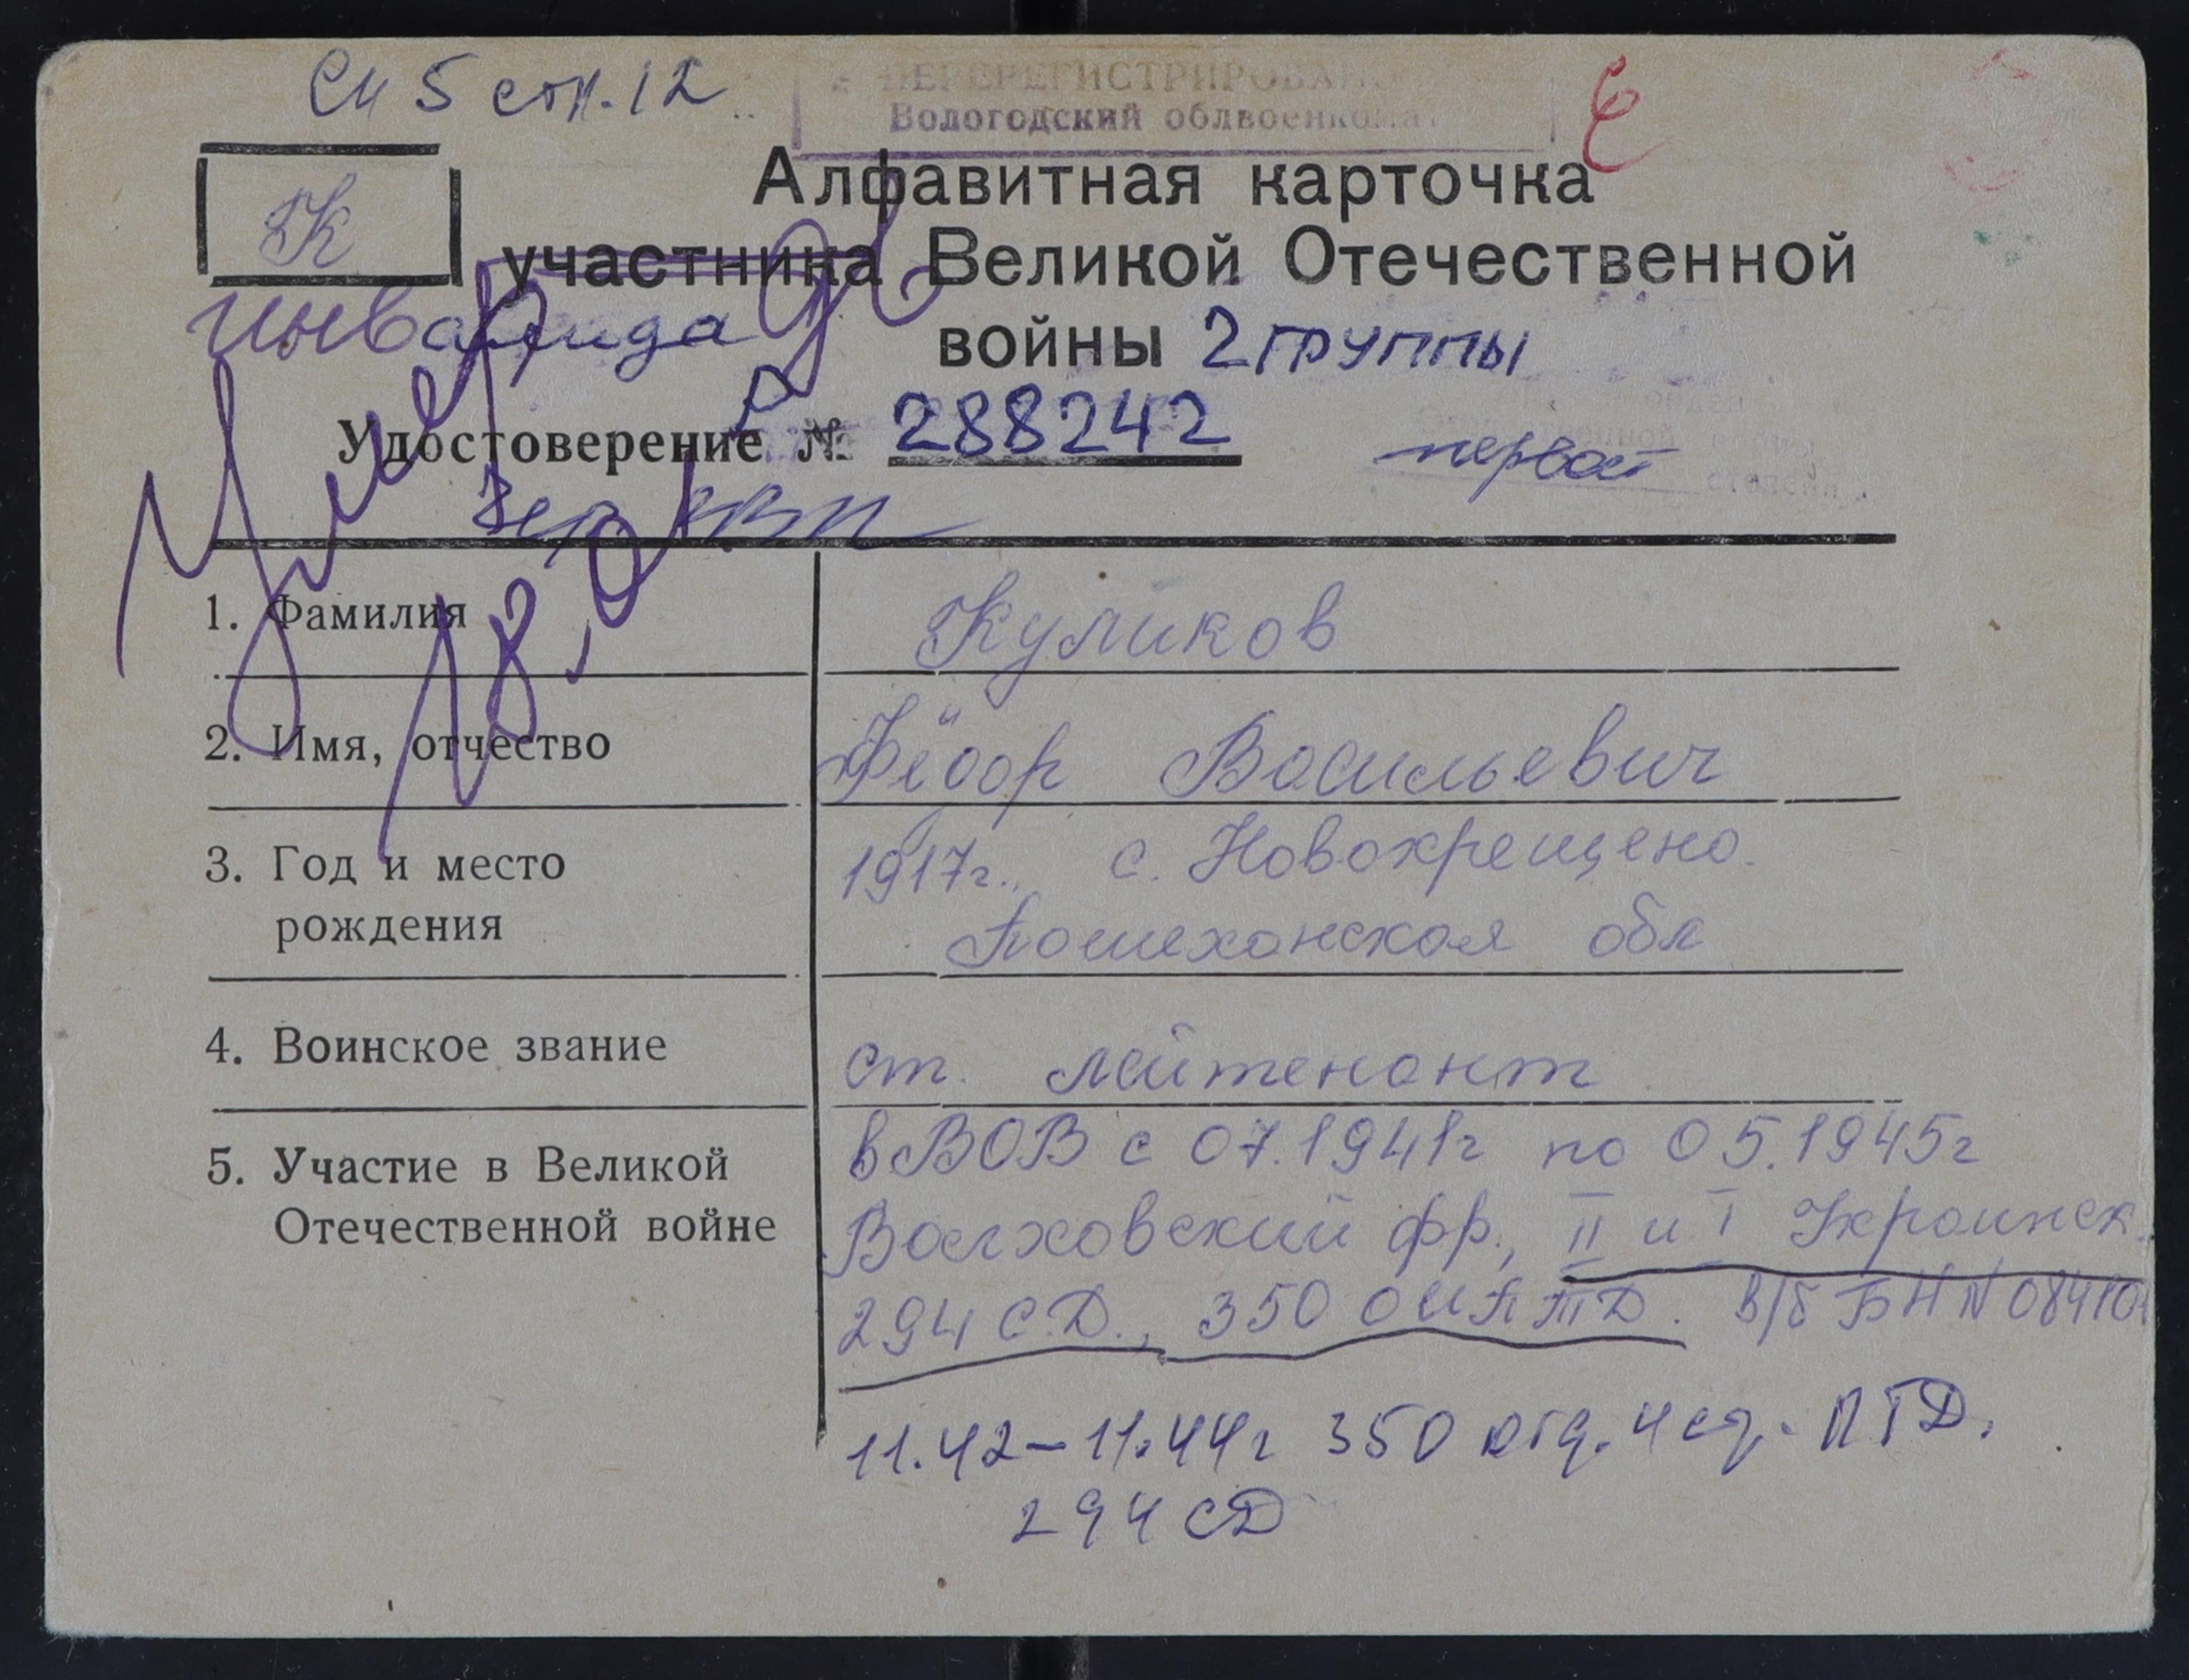 Сп 5 стр. 12
ПЕРЕРЕГИСТРИРОВАН
Вологодский облвоенкомат
К
Алфавитная карточка
участника Великой Отечественной
инвалида войны 2 группы
Удостоверение № 288242
первой степени
Умер
1. Фамилия Куликов
2. Имя, отчество Фёдор Васильевич
3. Год и место 1917г., с. Новокрещено.
рождения Пошехонская обл
4. Воинское звание ст. лейтенант
5. Участие в Великой в ВОВ с 07.1941г по 05.1945г
Отечественной войне Волховский фр., II и I Украинск.
294 С.Д., 350 ОИПТД. В/б БН N
11.42-11.44г 350 отд. ПТД.
294 СД